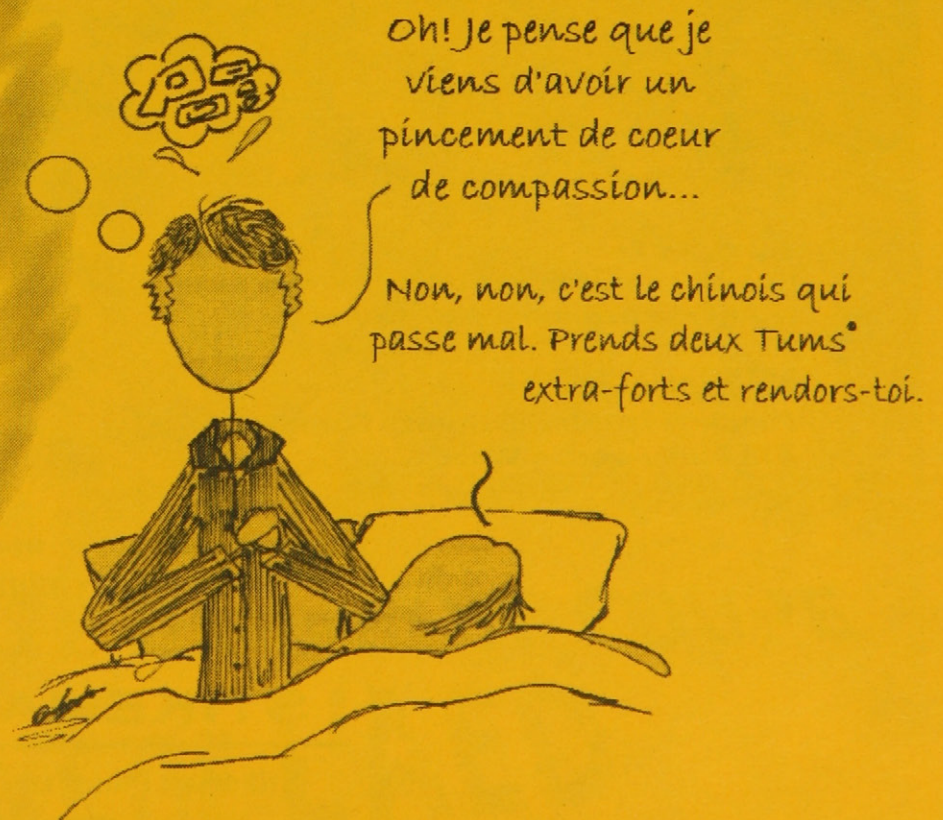 Oh! Je pense que je
viens d'avoir un
pincement de coeur
de compassion...
Non, non, c'est le chinois qui
passe mal. Prends deux Tums®
extra-forts et rendors-toi.